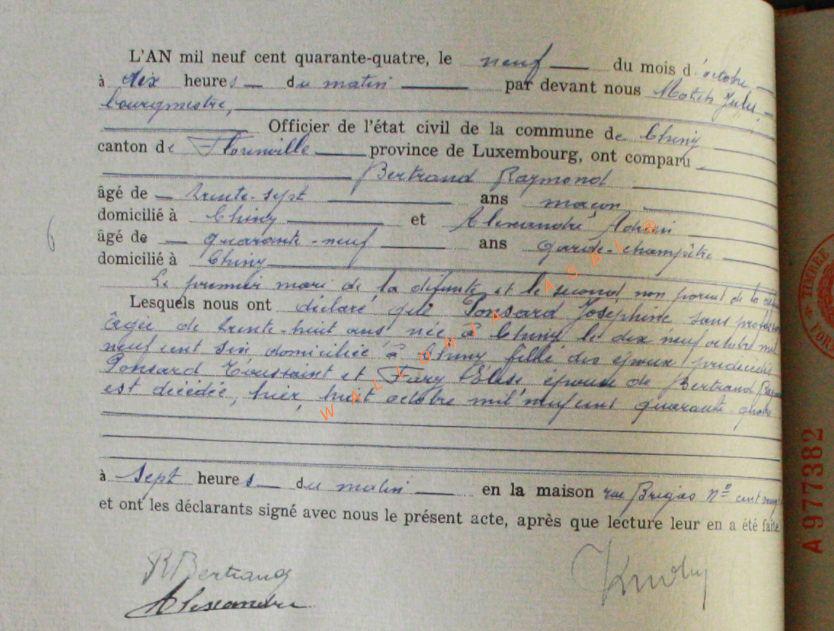 L'AN mil neuf cent quarante-quatre, le neuf du mois d'octobre
à dix heures du matin par devant nous
bourgmestre,
Officier de l'état civil de la commune de Chiny
canton de Florenville province de Luxembourg, ont comparu
Bertrand Raymond
âgé de trente-sept ans maçon
domicilié à Chiny et Alexandre Adrien
âgé de quarante-neuf ans garde-champêtre
domicilié à Chiny
6
Le premier mari de la défunte et le second, non parent de la
Lesquels nous ont déclaré que Ponsard Josephine sans
âgée de trente-huit ans née à Chiny le dix neuf octobre mil
neuf cent six, domiciliée à Chiny fille des époux
Ponsard Toussaint et Fary Elise épouse de Bertrand
est décédée, hier, huit octobre mil neuf cent quarante quatre
à sept heures du matin en la maison rue N° cent
et ont les déclarants signé avec nous le présent acte, après que lecture leur en a été faite
R Bertrand
Alexandre
TIMBRE
A977382